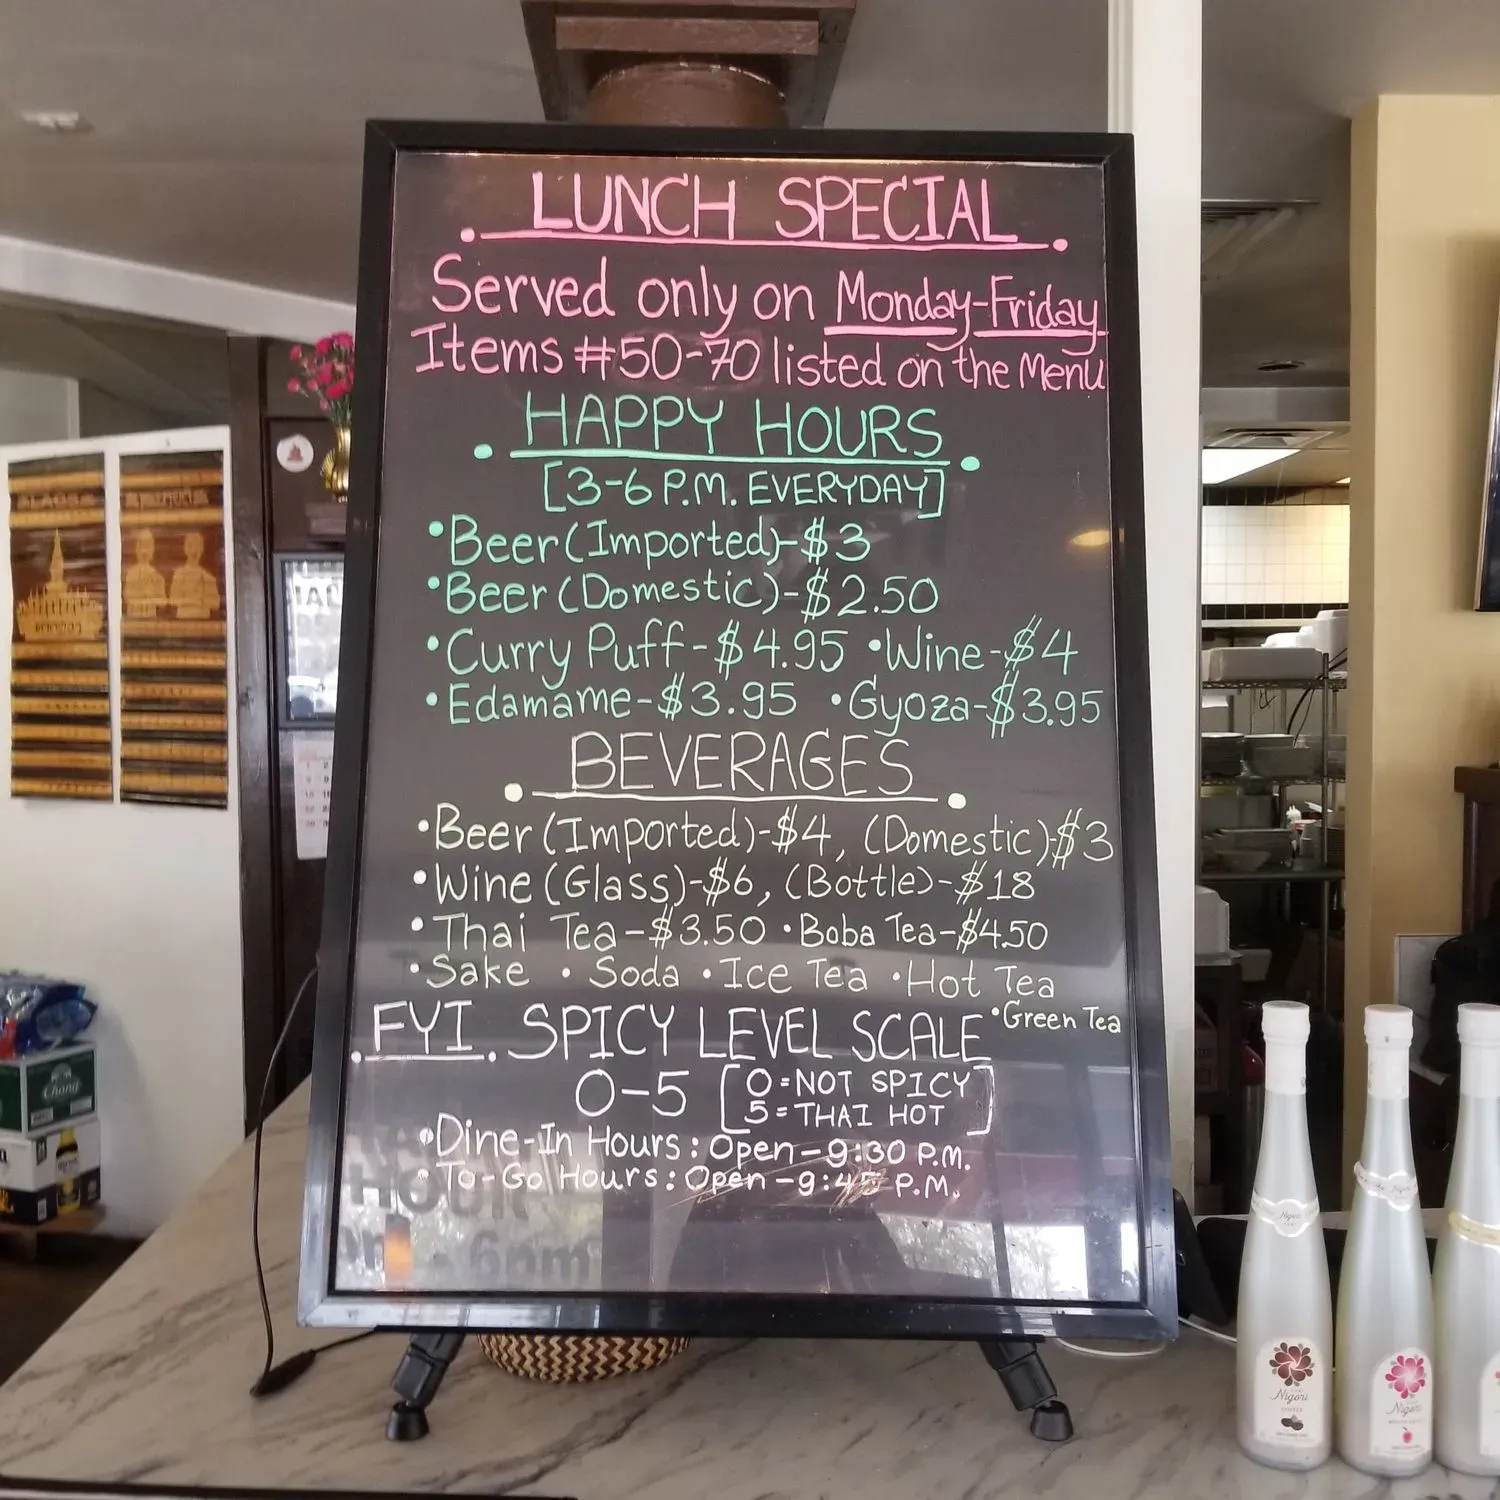 LUNCH SPECIAL
Served only on Monday-Friday
Items #50-70 listed on the Menu
HAPPY HOURS
[3-6 P.M. EVERYDAY]
•Beer (Imported)-$3
•Beer (Domestic)-$2.50
•Curry Puff-$4.95 •Wine-$4
•Edamame-$3.95 •Gyoza-$3.95
BEVERAGES
•Beer (Imported)-$4, (Domestic)-$3
•Wine (Glass)-$6, (Bottle)-$18
•Thai Tea-$3.50 •Boba Tea-$4.50
•Sake •Soda •Ice Tea •Hot Tea
•Green Tea
.FYI. SPICY LEVEL SCALE
0-5 [0=NOT SPICY
5=THAI HOT]
•Dine-In Hours: Open-9:30 P.M.
•To-Go Hours: Open-9:45 P.M.
Chang
Nigori
COFFEE
Nigori